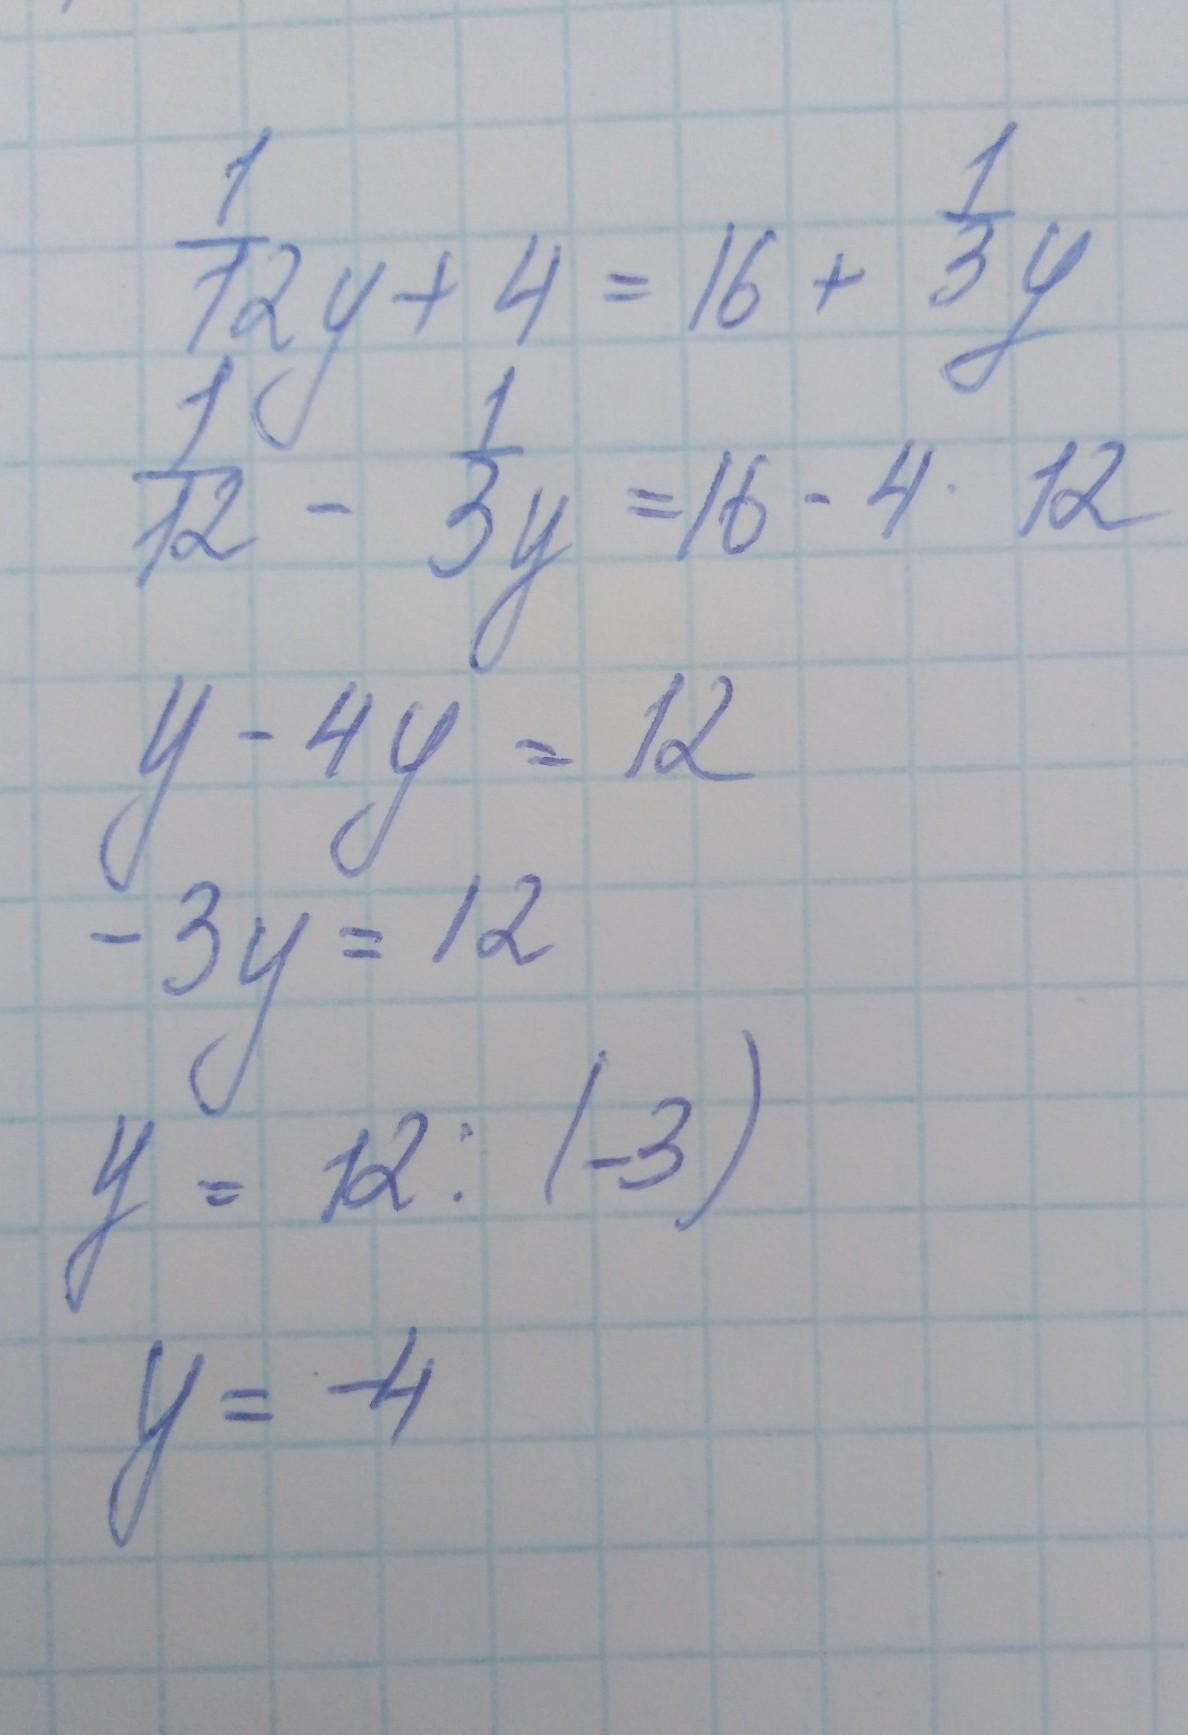 1/12 y + 4 = 16 + 1/3 y
1/12 - 1/3 y = 16 - 4 · 12
y - 4y = 12
-3y = 12
y = 12 : (-3)
y = -4